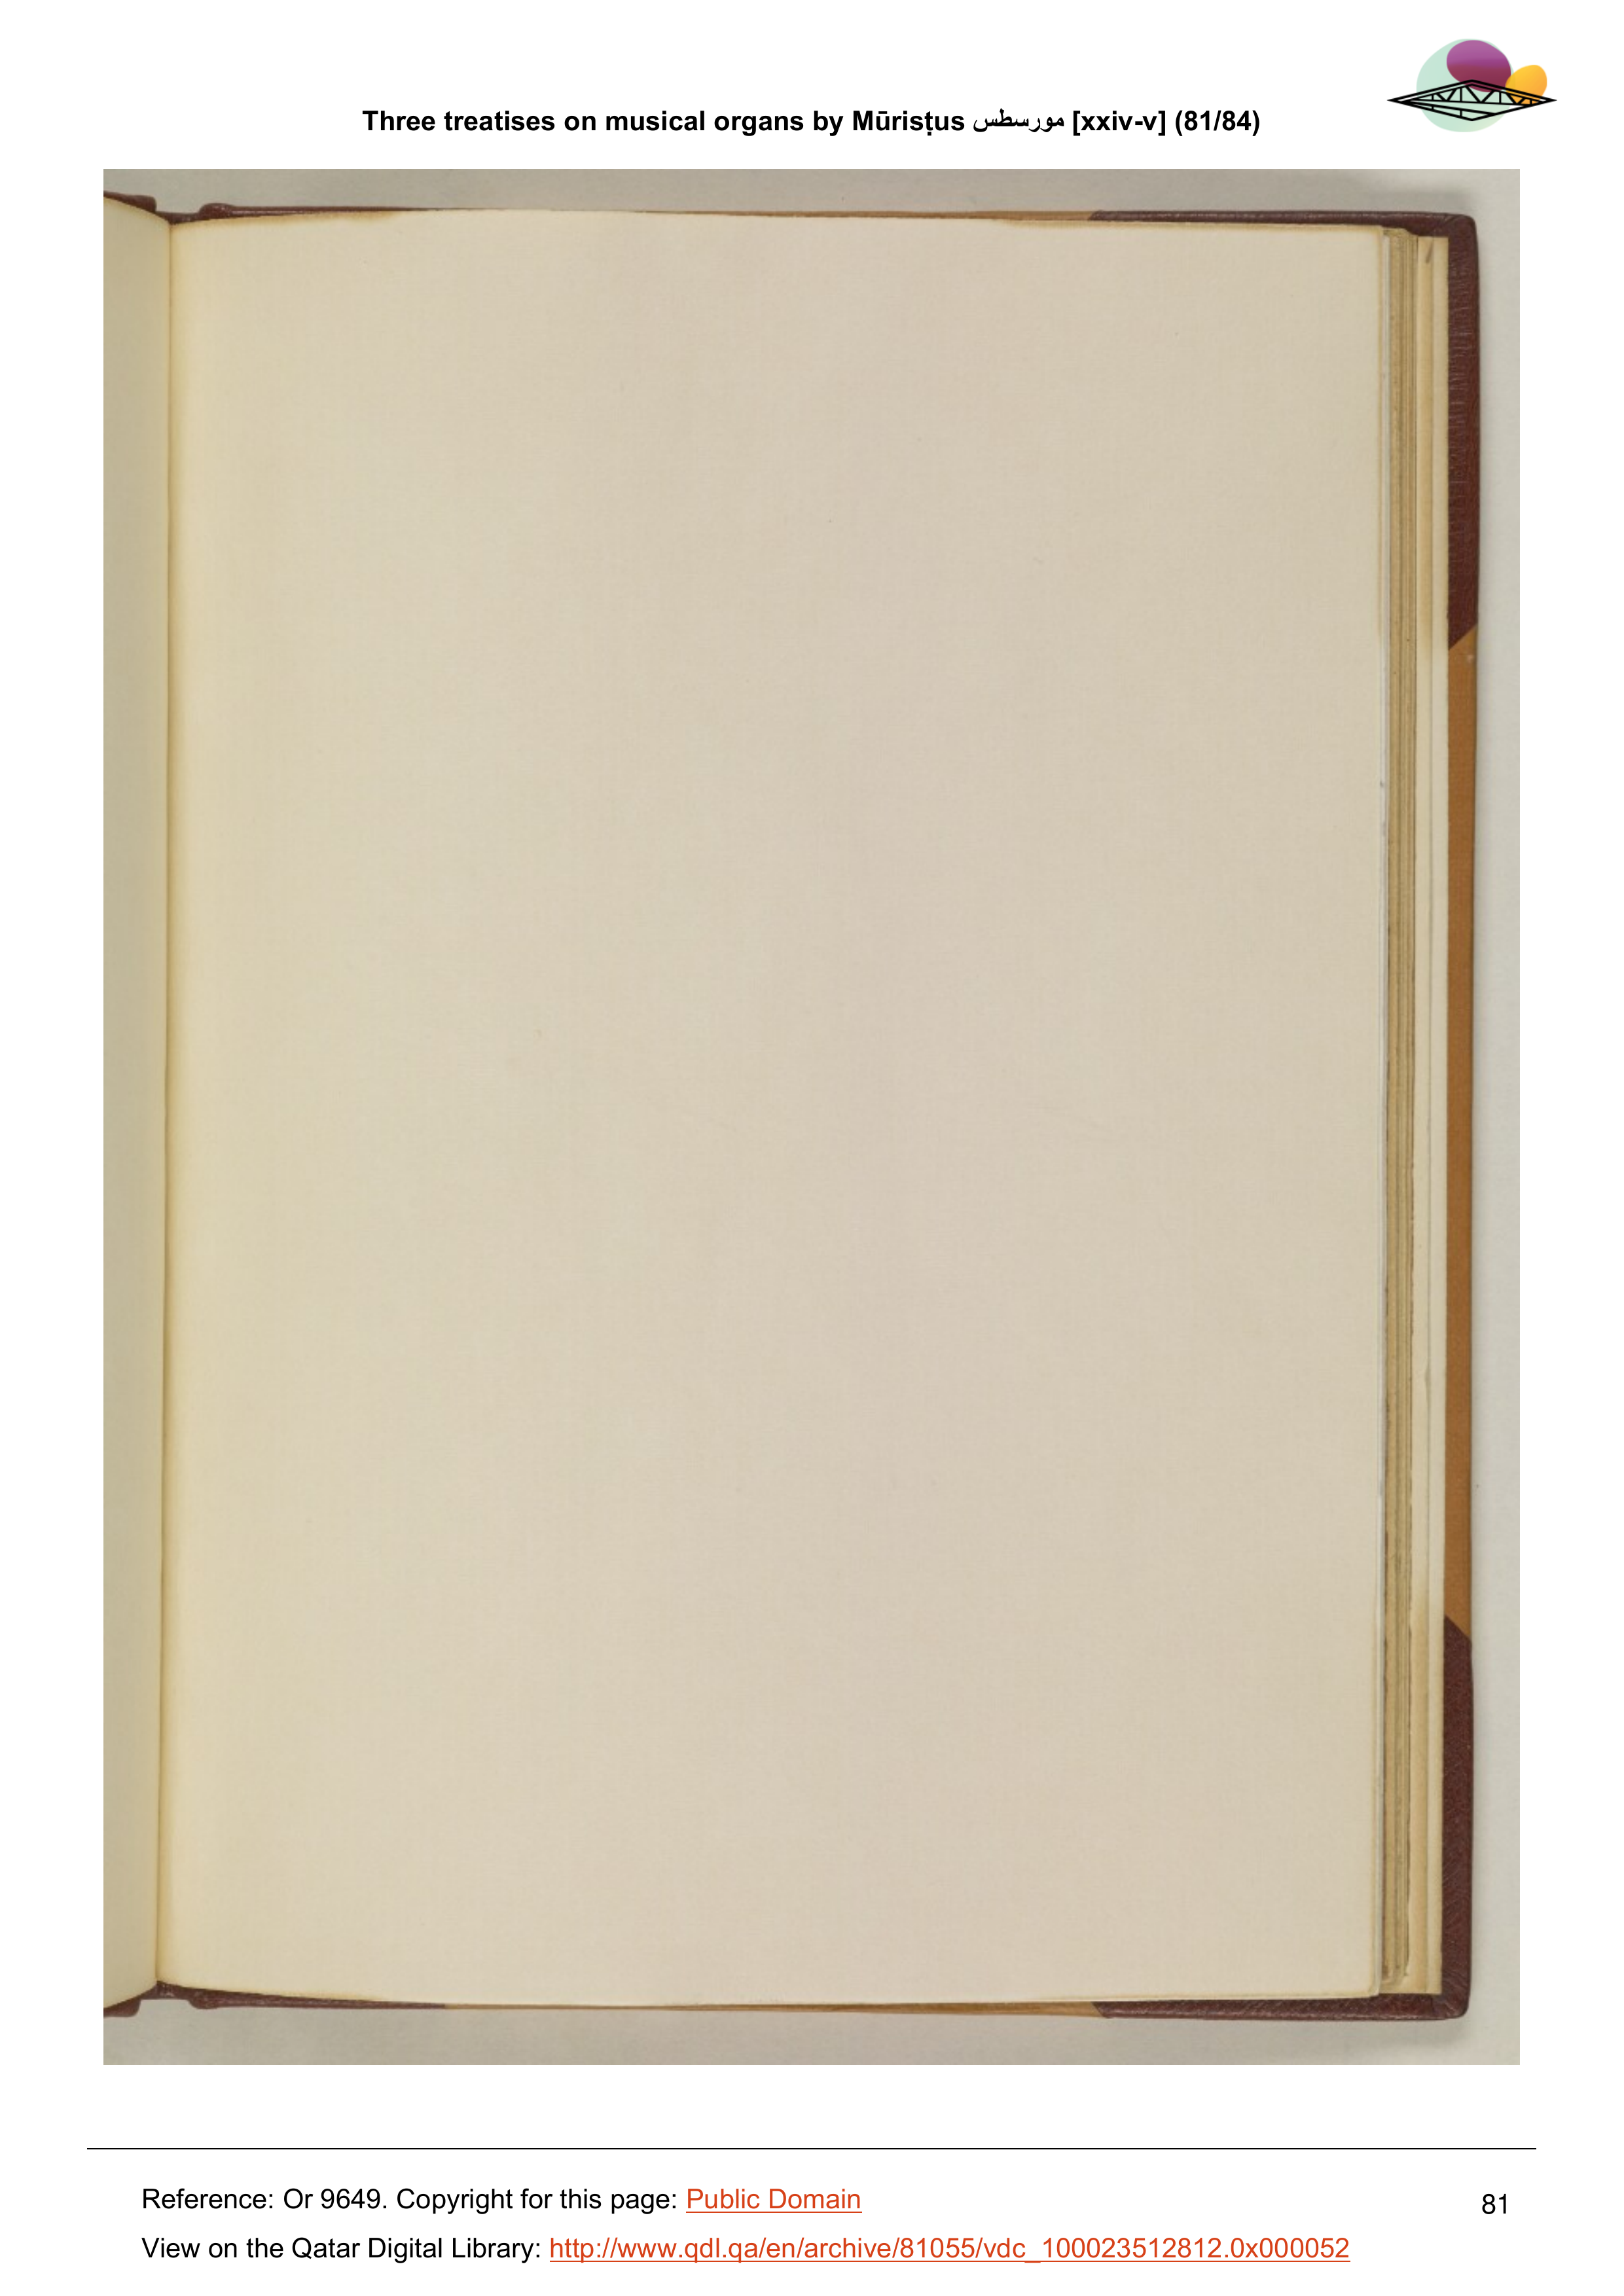 Three treatises on musical organs by Mūrisṭus مورسطس [xxiv-v] (81/84)
Reference: Or 9649. Copyright for this page: Public Domain
81
View on the Qatar Digital Library: http://www.qdl.qa/en/archive/81055/vdc_100023512812.0x000052